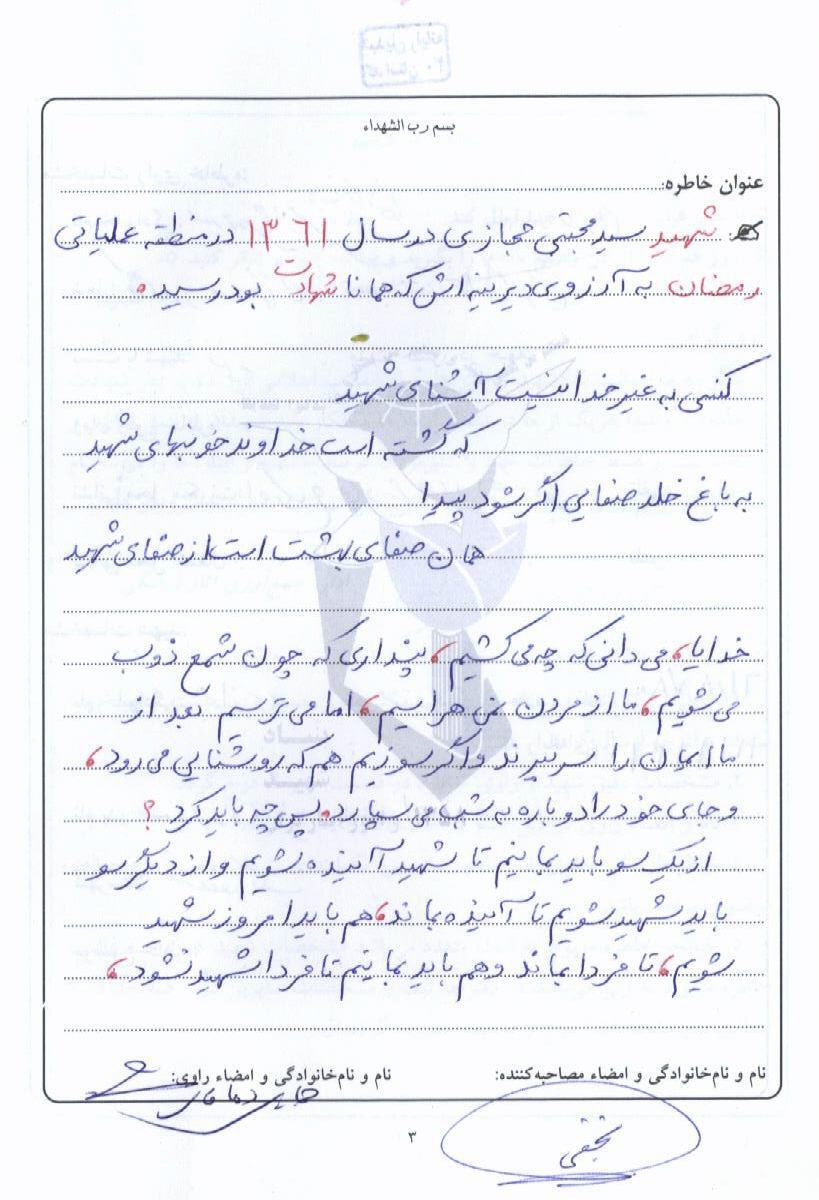 بسم رب الشهداء
عنوان خاطره:
شهید سید مجتبی حجازی در سال ۱۳۶۱ در منطقه عملیاتی
رمضان به آرزوی دیرینه اش که همانا شهادت بود رسید.
کسی به غیر خدا نیست آشنای شهید
که گشته است خداوند خونبهای شهید
به باغ خلد صفایی اگر شود پیدا
همان صفای بهشت است از صفای شهید
خدایا، می دانی که چه می کشیم، پنداری که چون شمع ذوب
می شویم، ما از مردن نمی هراسیم، اما می ترسیم بعد از
ما ایمان را سر ببرند و اگر سوزیم هم که روشنایی می رود،
و جای خود را دوباره به شب می سپارد. پس چه باید کرد؟
از یک سو باید بمانیم تا شهید آینده شویم و از دیگر سو
باید شهید شویم تا آینده بماند، هم باید امروز شهید
شویم، تا فردا بماند و هم باید بمانیم تا فردا شهید نشود،
نام و نام‌خانوادگی و امضاء مصاحبه‌کننده: نام و نام‌خانوادگی و امضاء راوی:
نجفی
۳